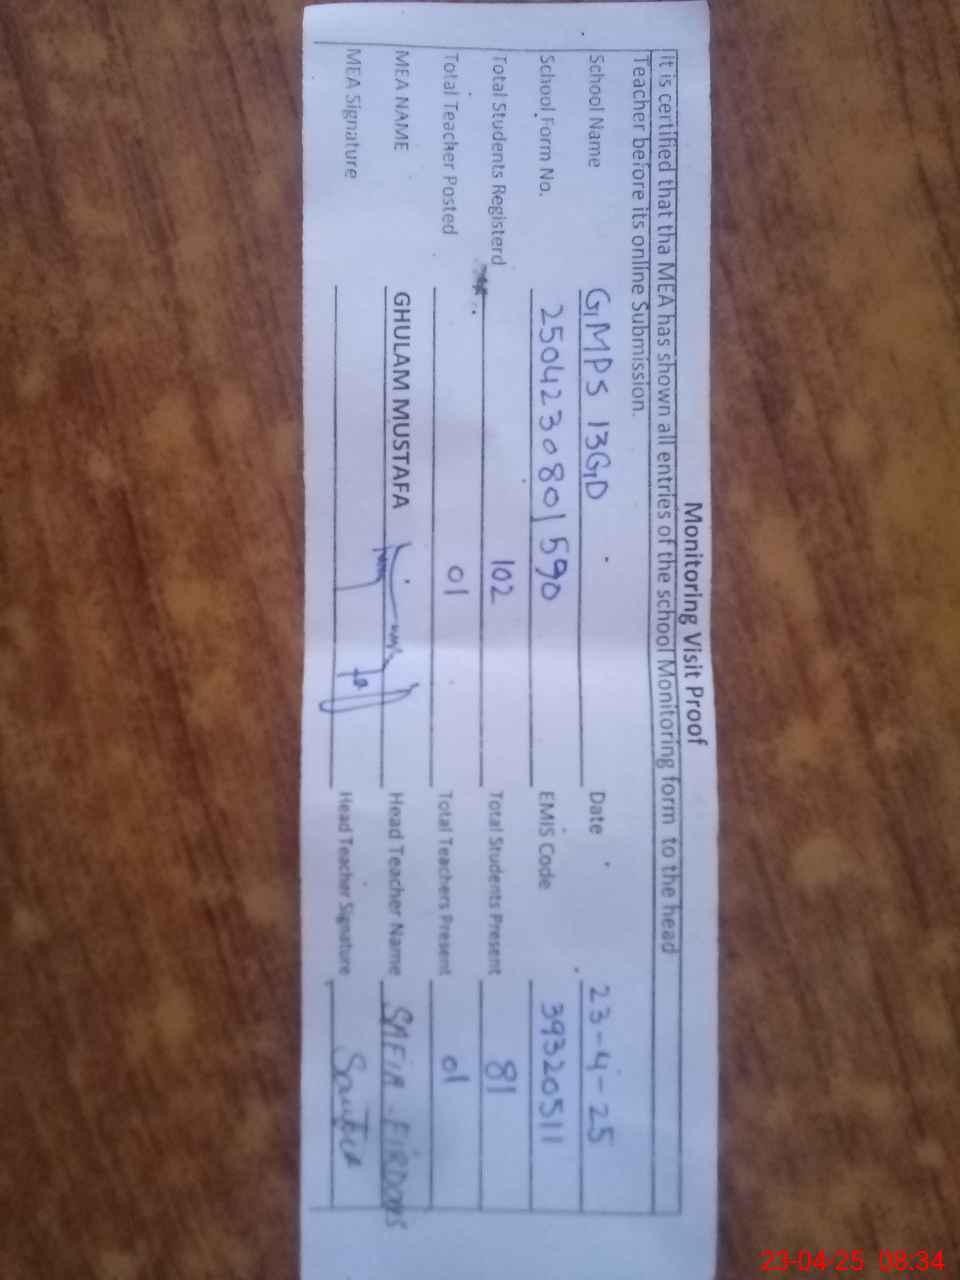 Monitoring Visit Proof
it is certified that tha MEA has shown all entries of the school Monitoring form to the head
Teacher before its online Submission.
School Name GMPS 13GD Date 23-4-25
School Form No. 2504230801590 EMIS Code 39320511
Total Students Registerd 102 Total Students Present 81
Total Teacher Posted 01 Total Teachers Present 01
MEA NAME GHULAM MUSTAFA Head Teacher Name SAFIA FIRDOUS
MEA Signature Head Teacher Signature
23-04-25 08:34